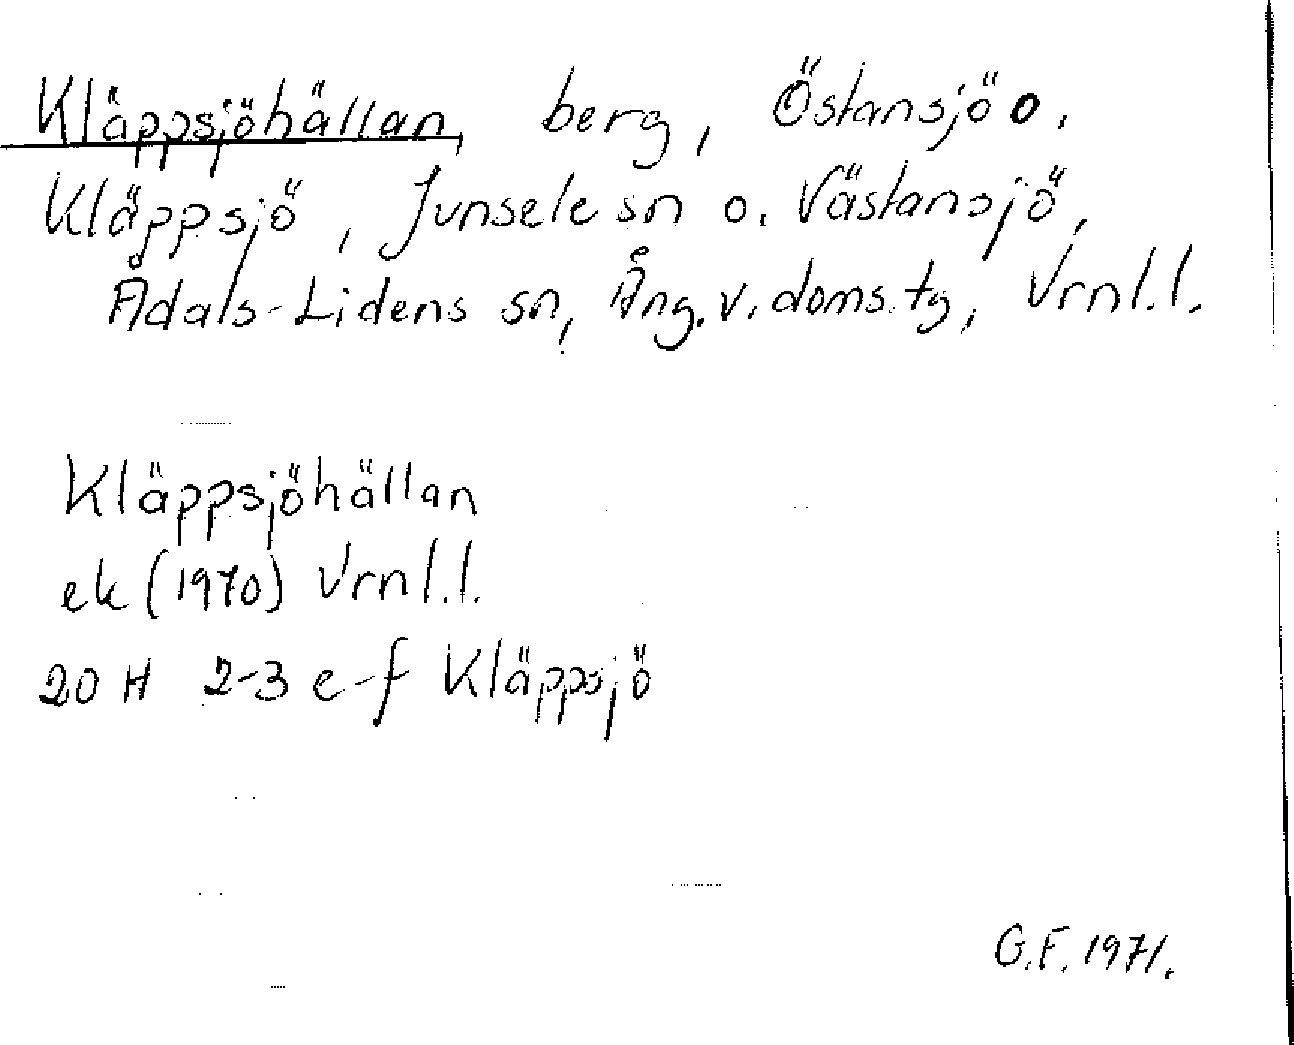 Kläppsjöhällan, berg, Östansjö o.
Kläppsjö, Junsele sn o. Västansjö,
Ådals-Lidens sn, Ång. v. doms.tg, Vrnl.l.
Kläppsjöhällan
ek (1970) Vrnl.l.
20 H 2-3 e-f Kläppsjö
G.F. 1971.